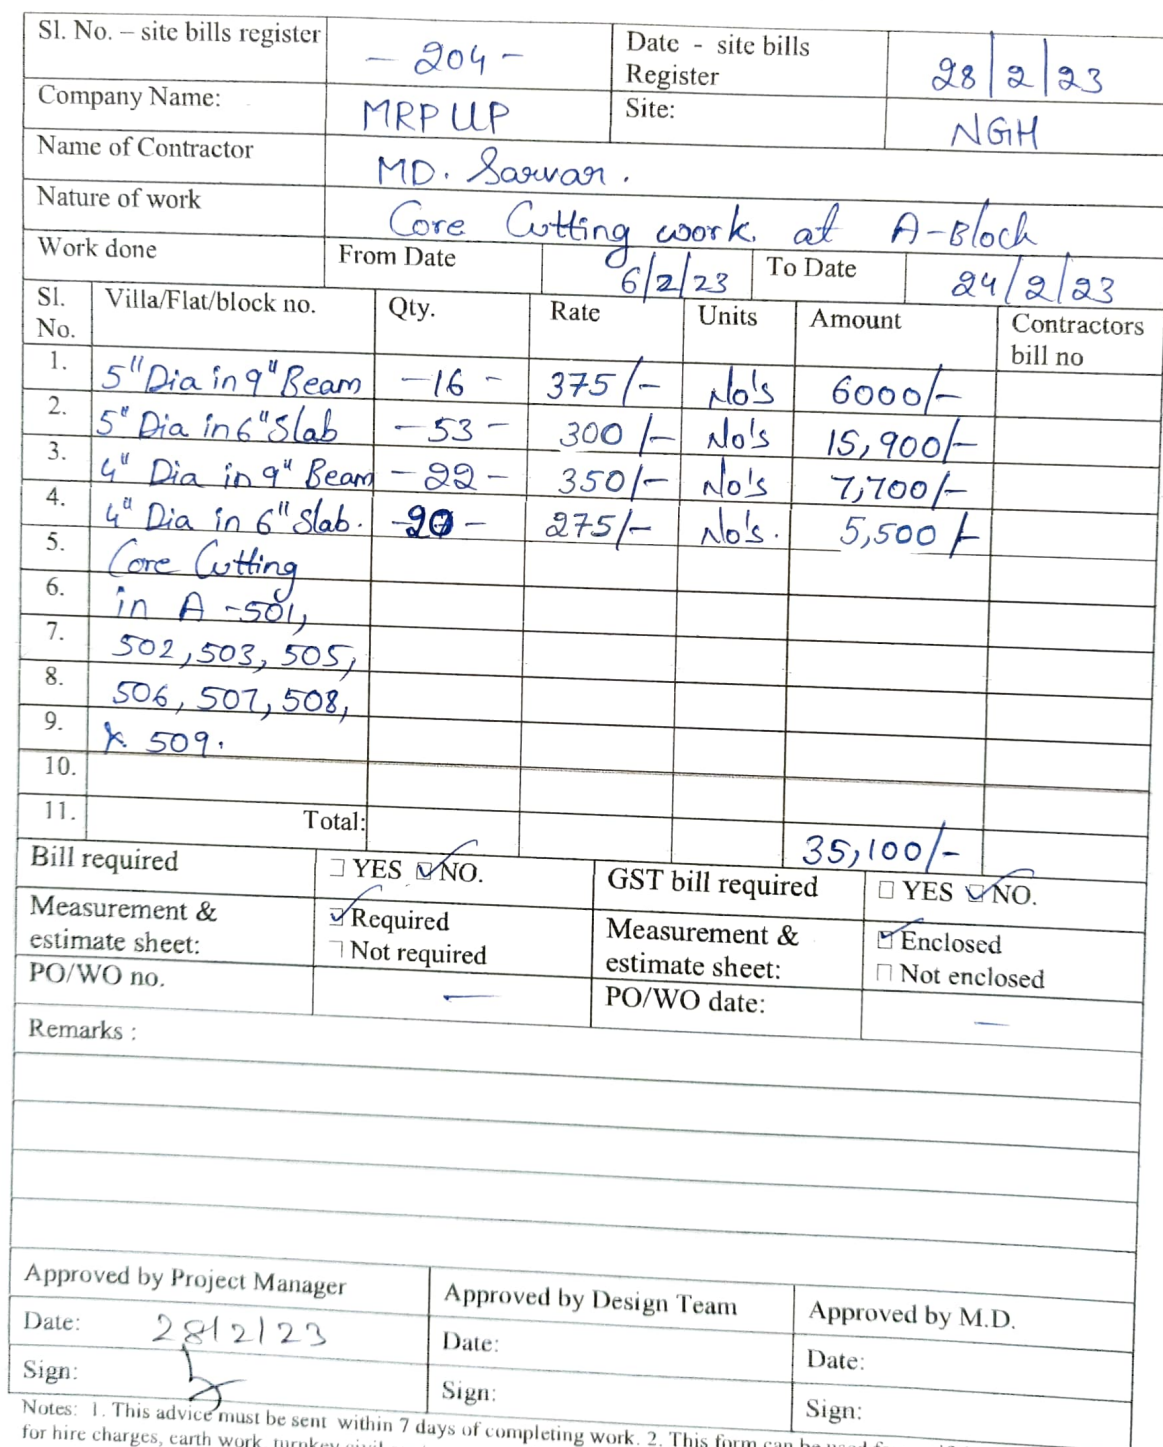 Sl. No. – site bills register - 204 - Date - site bills Register 28/2/23
Company Name: MRP LLP Site: NGH
Name of Contractor MD. Sarvar.
Nature of work Core Cutting work. at A-Block
Work done From Date 6/2/23 To Date 24/2/23
Sl. No. Villa/Flat/block no. Qty. Rate Units Amount Contractors bill no
1. 5" Dia in 9" Beam - 16 - 375/- No's 6000/-
2. 5" Dia in 6" Slab - 53 - 300/- No's 15,900/-
3. 4" Dia in 9" Beam - 22 - 350/- No's 7,700/-
4. 4" Dia in 6" Slab. - 20 - 275/- No's. 5,500/-
5. Core Cutting
6. in A-501,
7. 502, 503, 505,
8. 506, 507, 508,
9. & 509.
10.
11. Total: 35,100/-
Bill required YES NO. GST bill required YES NO.
Measurement & estimate sheet: Required Not required Measurement & estimate sheet: Enclosed Not enclosed
PO/WO no. — PO/WO date: —
Remarks :
Approved by Project Manager Approved by Design Team Approved by M.D.
Date: 28/2/23 Date: Date:
Sign: Sign: Sign:
Notes: 1. This advice must be sent within 7 days of completing work. 2. This form can be used
for hire charges, earth work, turnkey civil